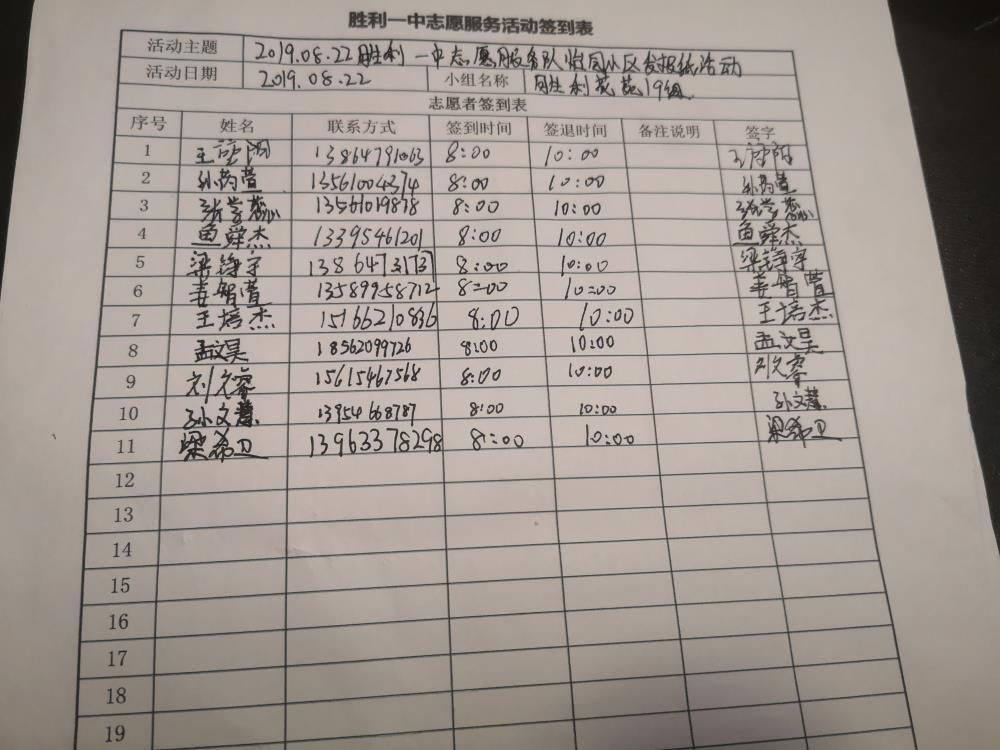 胜利一中志愿服务活动签到表
活动主题 2019.08.22胜利一中志愿服务队怡园小区发报纸活动
活动日期 2019.08.22 小组名称 胜利花苑19组
志愿者签到表
序号 姓名 联系方式 签到时间 签退时间 备注说明 签字
1 王 阳 13864791063 8:00 10:00 王 阳
2 孙 萱 13561004374 8:00 10:00 孙 萱
3 张学慧 13561019878 8:00 10:00 张学慧
4 鱼舜杰 13395461201 8:00 10:00 鱼舜杰
5 梁铮宇 13864731737 8:00 10:00 梁铮宇
6 姜智萱 13589958712 8:00 10:00 姜智萱
7 王培杰 15166210836 8:00 10:00 王培杰
8 孟文昊 18562099726 8:00 10:00 孟文昊
9 刘久睿 15615467568 8:00 10:00 刘久睿
10 孙文慧 13954668787 8:00 10:00 孙文慧
11 梁希卫 13963378298 8:00 10:00 梁希卫
12
13
14
15
16
17
18
19